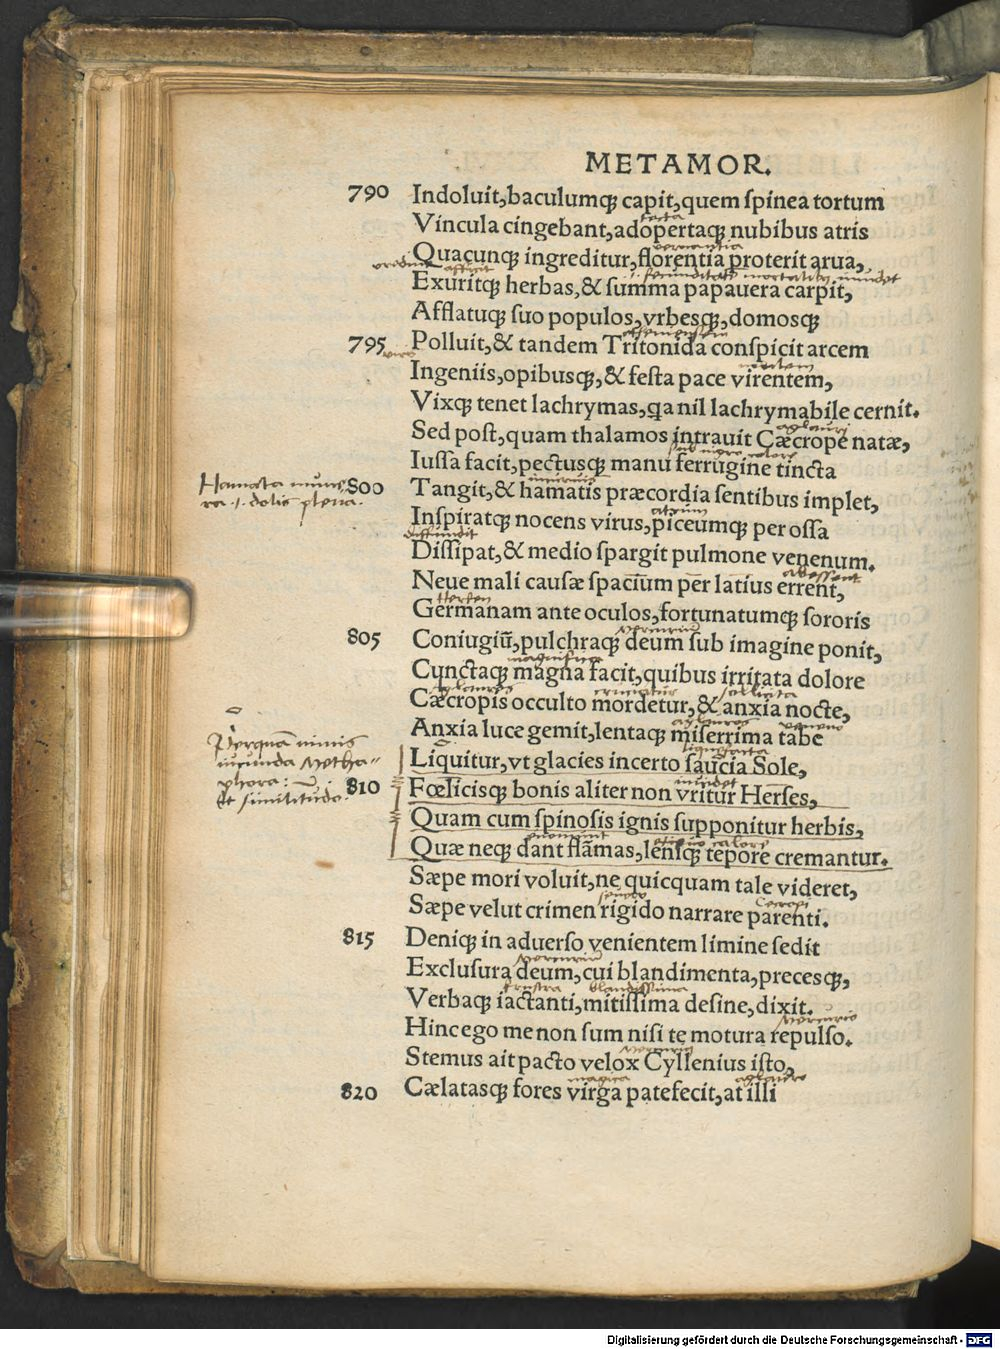 METAMOR.
790 Indoluit,baculumq; capit,quem ſpinea tortum
Vincula cingebant,adopertaq; nubibus atris
Quacunq; ingreditur,florentia proterit arua,
Exuritq; herbas,& ſumma papauera carpit,
Afflatuq; ſuo populos,vrbesq;,domosq;
795 Polluit,& tandem Tritonida conſpicit arcem
Ingeniis,opibusq;,& feſta pace virentem,
Vixq; tenet lachrymas,qa nil lachrymabile cernit.
aglauri
Sed poſt,quam thalamos intrauit Cæcrope natæ,
Iuſſa facit,pectusq; manu ferrugine tincta
Hamata mune⸗
ra .i. dolis plena.
800 Tangit,& hamatis præcordia ſentibus implet,
atrum
Inſpiratq; nocens virus,piceumq; per oſſa
diffundit
Diſſipat,& medio ſpargit pulmone venenum.
Neue mali cauſæ ſpacium per latius errent,
Germanam ante oculos,fortunatumq; ſororis
805 Coniugiū,pulchraq; deum ſub imagine ponit,
Cunctaq; magna facit,quibus irritata dolore
aglauros cruciatur ſollicita
Cæcropis occulto mordetur,& anxia nocte,
aglauros veneno
Anxia luce gemit,lentaq; miſerrima tabe
Perquā nimis
iucunda Metha⸗
phora:
et ſimilitudo.
liquefacta
Liquitur,vt glacies incerto ſaucia Sole,
810 Fœlicisq; bonis aliter non vritur Herſes,
Quam cum ſpinoſis ignis ſupponitur herbis,
Quæ neq; dant flāmas,leniq; tepore cremantur.
Sæpe mori voluit,ne quicquam tale videret,
ſeuero Cecropi
Sæpe velut crimen rigido narrare parenti.
815 Deniq; in aduerſo venientem limine ſedit
Mercuriū
Excluſura deum,cui blandimenta,precesq;,
fruſtra blandiſſima
Verbaq; iactanti,mitiſſima deſine,dixit.
Mercurio
Hinc ego me non ſum niſi te motura repulſo.
Mercurius
Stemus ait pacto velox Cyllenius iſto,
magica aglauro
820 Cælatasq; fores virga patefecit,at illi
Digitalisierung gefördert durch die Deutsche Forschungsgemeinschaft - DFG